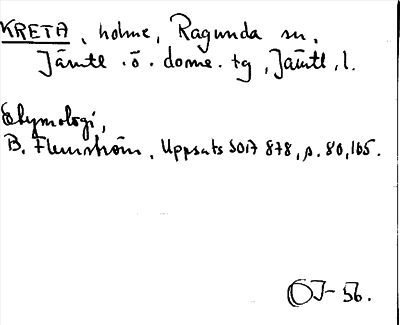 KRETA, holme, Ragunda sn,
Jämtl. ö. doms. tg, Jämtl. l.
Etymologi,
B. Flemström, Uppsats SOI 878, s. 80, 165.
OJ-56.